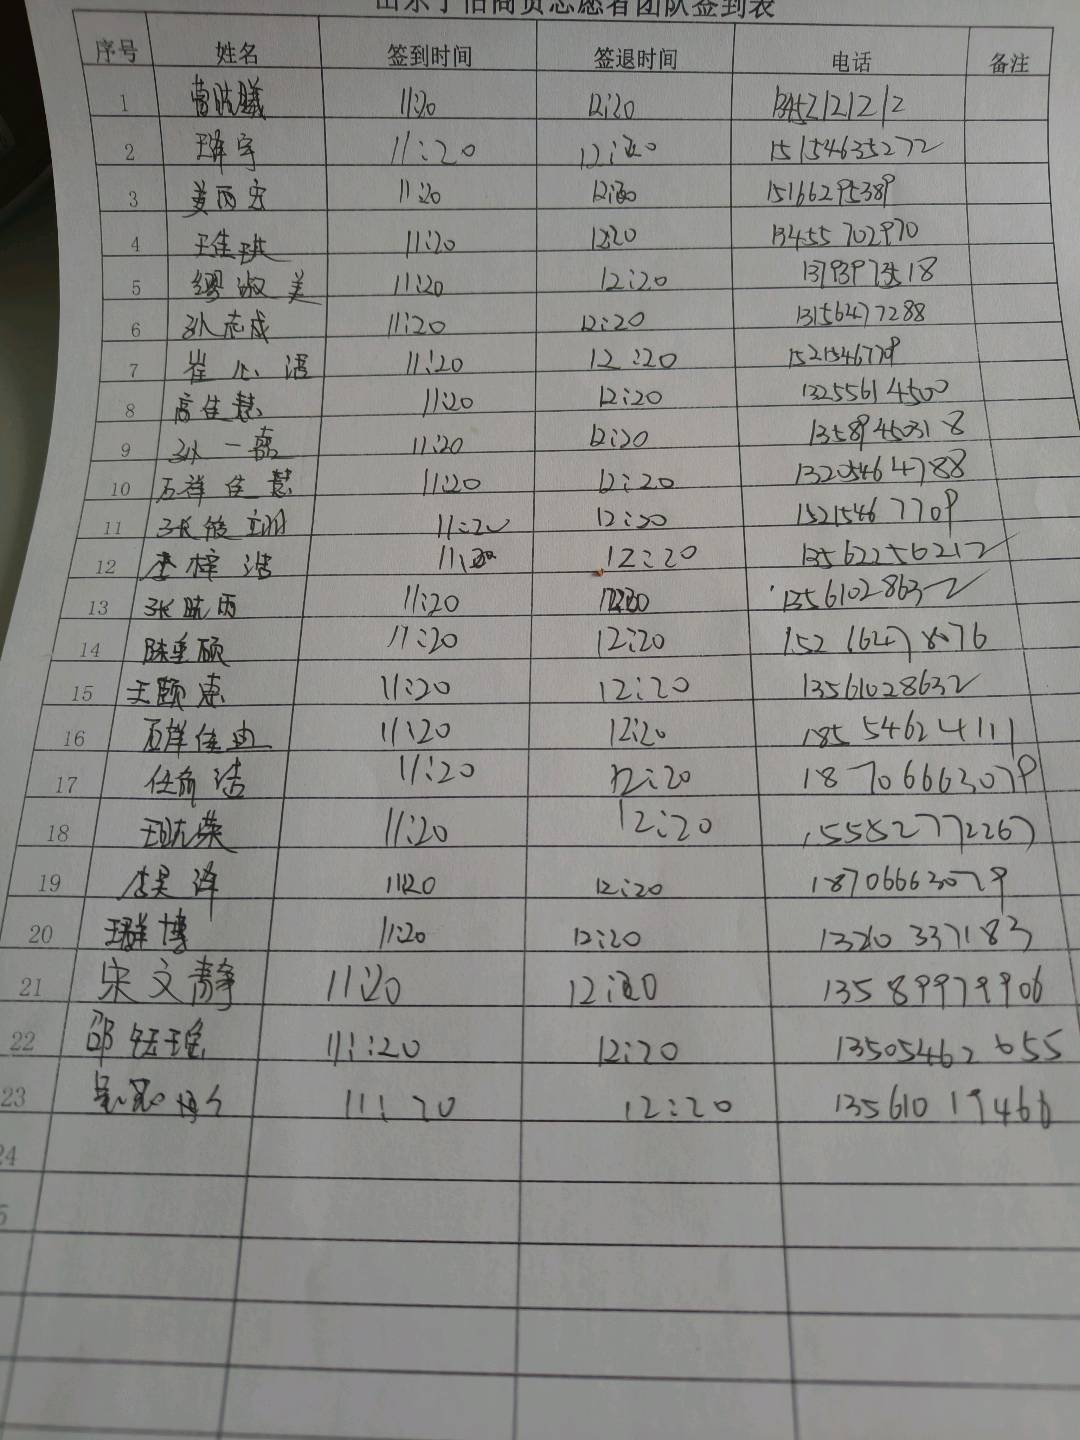 商贸志愿者团队签到表
序号 姓名 签到时间 签退时间 电话 备注
1 11:20 12:20 13452121212
2 王泽宇 11:20 12:20 15154635272
3 姜丙宏 11:20 12:20 15166295389
4 王佳琪 11:20 12:20 13455702970
5 缪淑美 11:20 12:20
6 孙志成 11:20 12:20 13156477288
7 崔心语 11:20 12:20
8 高佳慧 11:20 12:20 13255614500
9 孙一 11:20 12:20 13589450318
10 石祥佳慧 11:20 12:20 13205464788
11 张 11:20 12:20 15215467709
12 李梓浩 11:20 12:20 13562256212
13 张 11:20 12:20 13561028632
14 陈 硕 11:20 12:20
15 王颐惠 11:20 12:20 13561028632
16 佳 11:20 12:20 18554624111
17 任前洁 11:20 12:20 18706663079
18 11:20 12:20 15552772267
19 李昊泽 11:20 12:20 18706663079
20 博 11:20 12:20
21 宋文静 11:20 12:20 13589979906
22 邵钰瑶 11:20 12:20 13505462655
23 11:20 12:20 13561019466